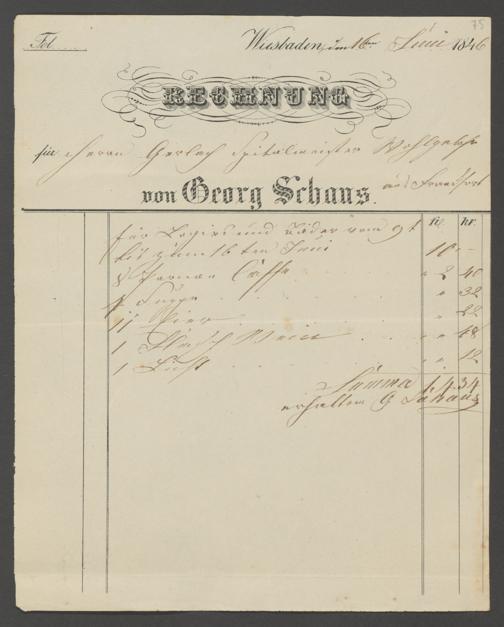 75
Fol
Wiesbaden, den 16ten Juni 1846
RECHNUNG
für Herrn Gerlach Spitalmeister Wohlgeb
aus Frankfurt
von Georg Schaus.
fl. kr.
für Logis und Bäder vom 9t
bis zum 16ten Juni 10 -
8 Caffe 2 40
4 Suppe 32
11 Bier
1 Flasch Wein 48
1 12
Summa 14 34
erhalten G Schaus